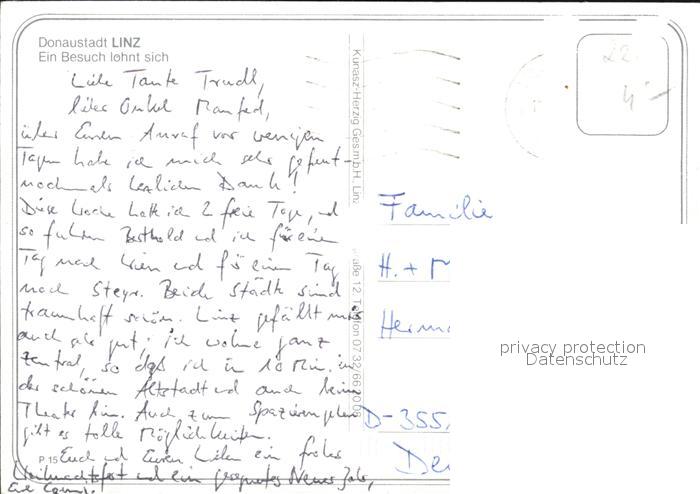 Donaustadt LINZ
Ein Besuch lohnt sich
Liebe Tante Trudl,
lieber Onkel Manfred,
über Euren Anruf vor wenigen
Tagen habe ich mich sehr gefreut -
nochmals herzlichen Dank!
Diese Woche hatte ich 2 freie Tage, und
so fuhren Berthold und ich für einen
Tag nach Wien und für einen Tag
nach Steyr. Beide Städte sind
traumhaft schön. Linz gefällt mir
auch sehr gut; ich wohne ganz
zentral, so daß ich in 10 Min. in
der schönen Altstadt und auch beim
Theater bin. Auch zum Spazierengehen
gibt es tolle Möglichkeiten.
Euch und Euren Lieben ein frohes
Weihnachtsfest und ein gesegnetes Neues Jahr,
Eure
P 15
Kunasz-Herzig Ges.m.b.H. Linz
aße 12, Telefon 0732/66
22.
4,-
Familie
H. +
Herm
D-355
De
privacy protection
Datenschutz